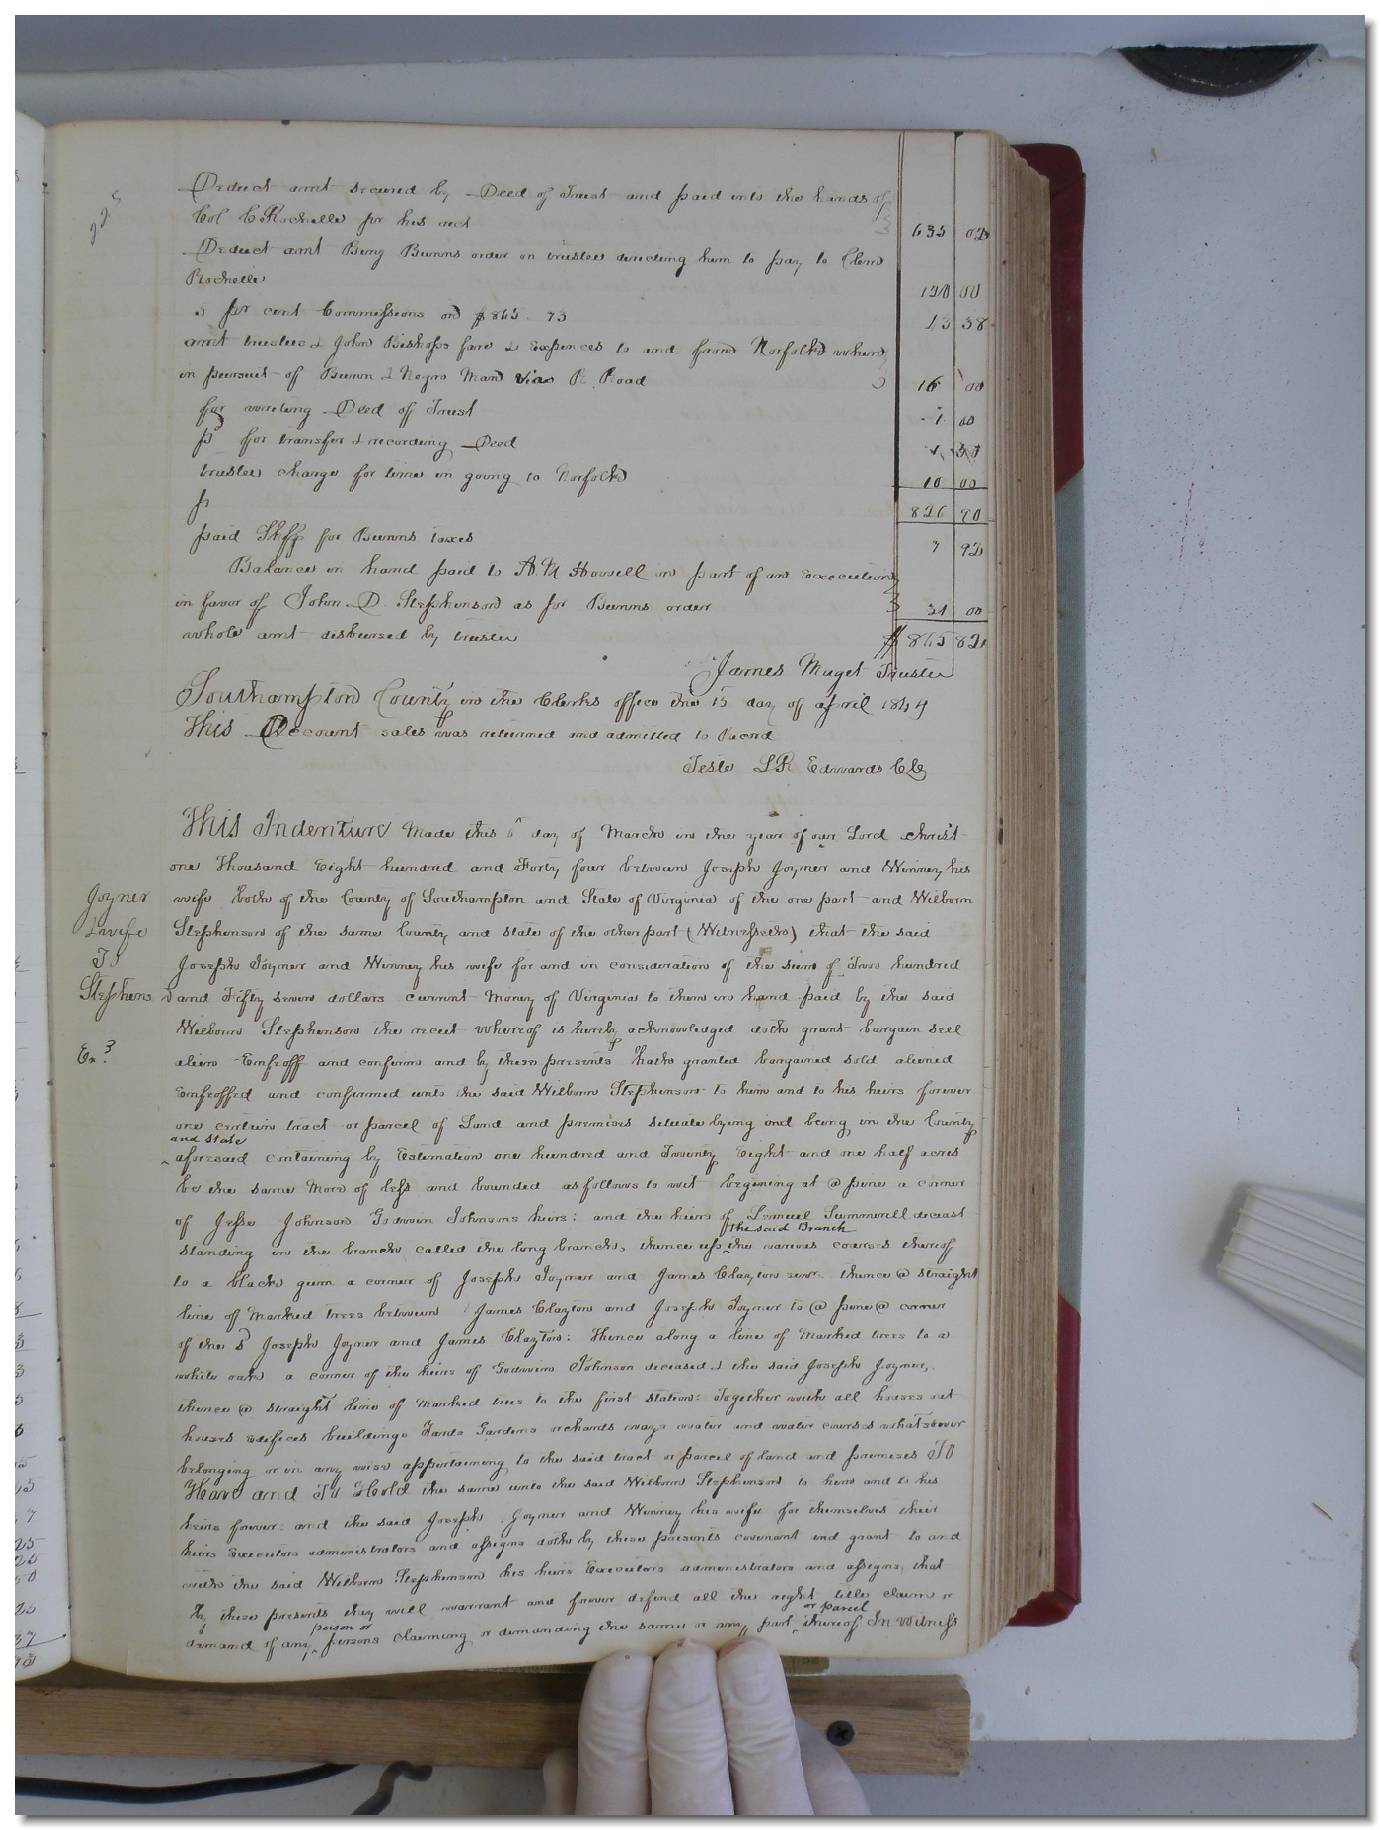 225
Deduct amt secured by Deed of Trust and paid into the hands of
Col C Rochelle for his act 635 02
Deduct amt Benj Bunns order on trustee directing him to pay to Clem
Rochelle 150 00
pr cent Commissions on $865. 73 13 38
amt trustee & John Bishops fare & Expences to and from Norfolk when
in pursuit of Bunn & Negro Man via R. Road 16 00
for writing Deed of Trust 1 00
pd for transfer & recording Deed 1 50
trustee charge for time in going to Norfolk 10 00
826 90
paid Shff for Bunns taxes 7 92
Balance in hand paid to A M Howell in part of an execution
in favor of John D. Stephenson as pr Bunns order 31 00
whole amt disbursed by trustee $ 865 82
James Maget Trustee
Southampton County in the Clerks office the 15 day of april 1844
This Account sales was returned and admitted to Record
Teste L R Edwards Clk
This Indenture Made this 6th day of March in the year of our Lord Christ
one Thousand Eight hundred and Forty four between Joseph Joyner and Winney his
Joyner wife both of the County of Southampton and State of Virginia of the one part and Wilborn
& wife Stephenson of the same County and state of the other part (Witnesseth) that the said
To Joseph Joyner and Winney his wife for and in consideration of the sum of Two hundred
Stephens and Fifty seven dollars current Money of Virginia to them in hand paid by the said
Wilborn Stephenson the receit whereof is hereby acknowledged doth grant bargain sell
Ex.d alien Enfeoff and confirm and by these presents hath granted bargained sold aliened
Enfeoffed and confirmed unto the said Wilborn Stephenson to him and to his heirs forever
one certain tract or parcel of Land and premises situate lying and being in the County
and State
aforesaid containing by Estimation one hundred and Twenty Eight and one half acres
be the same More of less and bounded as follows to wit begining at @ pine a corner
of Jesse Johnson Godwin Johnsons heirs: and the heirs of Lemuel Summerill deceast
the said Branch
standing in the branch called the long branch, thence up the various courses thereof
to a black gum a corner of Joseph Joyner and James Clayton senr. thence @ straight
line of Marked trees between James Clayton and Joseph Joyner to @ pine @ corner
of the sd Joseph Joyner and James Clayton: Thence along a line of Marked trees to a
white oak a corner of the heirs of Godwin Johnson deceased & the said Joseph Joyner,
thence @ straight line of Marked trees to the first station: Together with all houses out
houses Edifices buildings Yards Gardens orchards ways water and water courses whatsoever
belonging or in any wise appertaining to the said tract or parcel of land and premises To
Have and To Hold the same unto the said Wilborn Stephenson to him and to his
heirs forever: and the said Joseph Joyner and Winney his wife for themselves their
heirs Executors administrators and assigns doth by these presents covenant and grant to and
with the said Wilborn Stephenson his heirs Executors administrators and assigns, that
by these presents they will warrant and forever defend all the right title claim or
person or or parcel
demand of any persons claiming or demanding the same or any part thereof In Witness